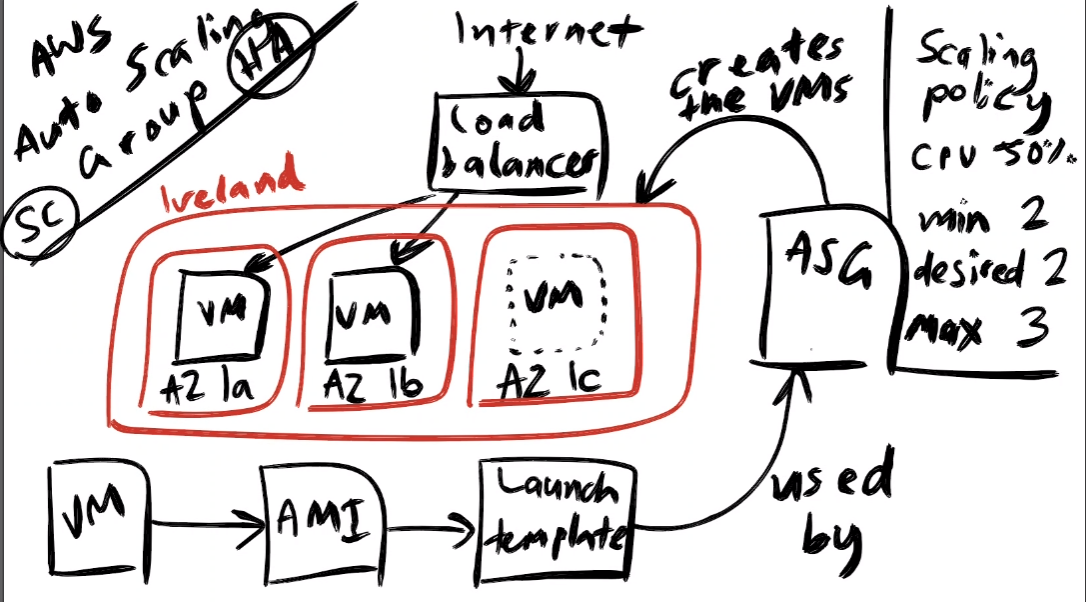 AWS
Auto Scaling
Group
HA
SC
Internet
Load
balancer
creates
the VMs
Scaling
policy
CPU 50%.
min 2
desired 2
max 3
Ireland
VM
AZ 1a
VM
AZ 1b
VM
AZ 1c
ASG
VM
AMI
Launch
template
used
by